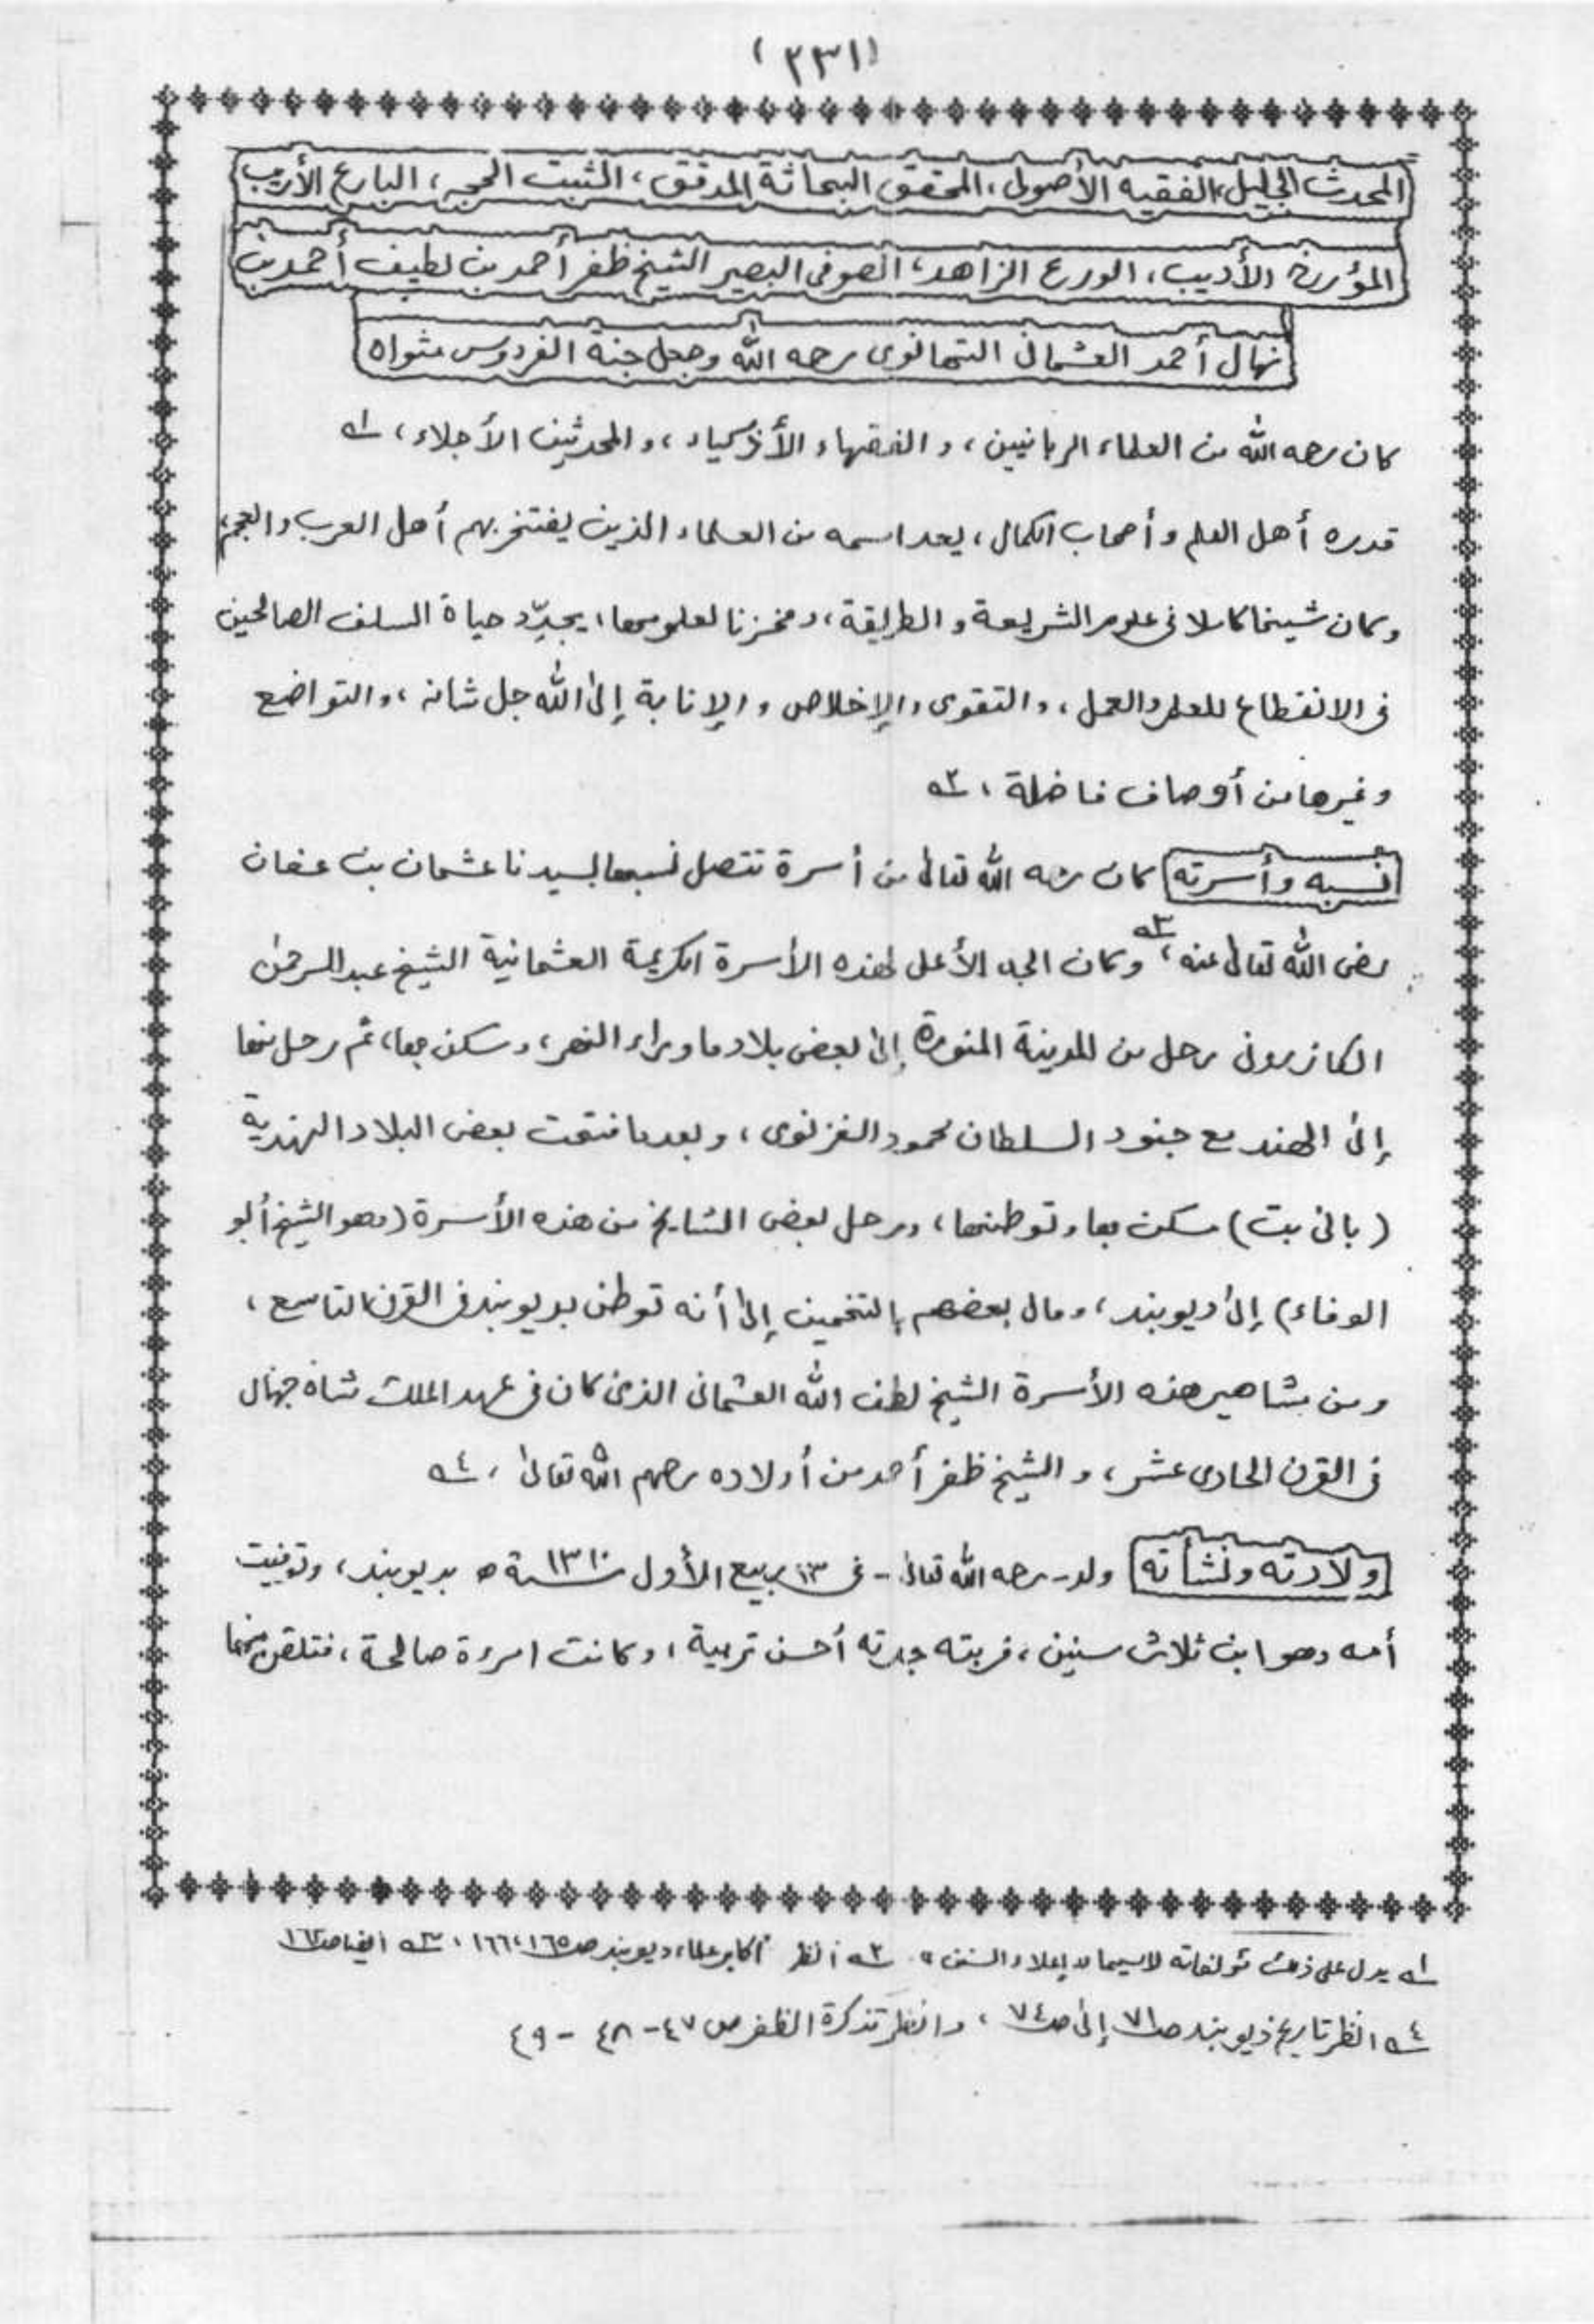 (٢٣١)
المحدث الجليل، الفقيه الأصولى، المحقق البحاثة المدقق، الثبت الحجة، البارع الأريب
المؤرخ الأديب، الورع الزاهد، الصوفى البصير الشيخ ظفر أحمد بن لطيف أحمد بن
نهال أحمد العثمانى التهانوى رحمه الله وجعل جنة الفردوس مثواه
كان رحمه الله من العلماء الربانيين، والفقهاء الأذكياء، والمحدثين الأجلاء، ١ه
قدره أهل العلم وأصحاب الكمال، يعد اسمه من العلماء الذين يفتخر بهم أهل العرب والعجم،
وكان شيخا كاملا فى علوم الشريعة والطريقة، ومخزنا لعلومها، يجدّد حياة السلف الصالحين
فى الانقطاع للعلم والعمل، والتقوى والإخلاص والإنابة إلى الله جل شانه، والتواضع
وغيرها من أوصاف فاضلة، ٢ه
نسبه وأسرته كان رحمه الله تعالى من أسرة تتصل نسبها لسيدنا عثمان بن عفان
رضى الله تعالى عنه، ٣ه وكان الجد الأعلى لهذه الأسرة الكريمة العثمانية الشيخ عبد الرحمن
الكازرونى رحل من المدينة المنورة إلى بعض بلاد ما وراء النهر، وسكن بها، ثم رحل منها
إلى الهند مع جنود السلطان محمود الغزنوى، وبعد ما فتحت بعض البلاد الهندية
(بانى بت) سكن بها وتوطنها، ورحل بعض المشايخ من هذه الأسرة (وهو الشيخ أبو
الوفاء) إلى ديوبند، ومال بعضهم بالتخمين إلى أنه توطن بديوبند فى القرن التاسع،
ومن مشاهير هذه الأسرة الشيخ لطف الله العثمانى الذى كان فى عهد الملك شاه جهال
فى القرن الحادى عشر، والشيخ ظفر أحمد من أولاده رحمهم الله تعالى، ٤ه
ولادته ونشأته ولد - رحمه الله تعالى - فى ١٣ ربيع الأول سنة ١٣١٠ ه بديوبند، وتوفيت
أمه وهو ابن ثلاث سنين، فربته جدته أحسن تربية، وكانت امرءة صالحة، فتلقى منها
١ه يدل على ذلك مؤلفاته لاسيما "إعلاء السنن" ٢ه انظر أكابر علماء ديوبند ص١٦٥، ١٦٦، ٣ه ايضا ص١٦٢
٤ه انظر تاريخ ديوبند ص٧١ إلى ص٧٤، وانظر تذكرة الظفر ص ٤٧- ٤٨ - ٤٩